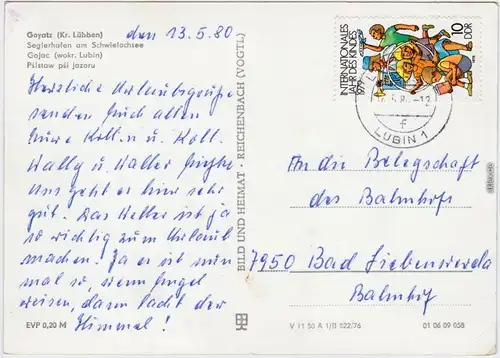 Goyatz (Kr. Lübben)
Seglerhafen am Schwielochsee
Gojac (wokr. Lubin)
Pśistaw pśi jazoru
den 13.5.80
Herzliche Urlaubsgrüße
senden Euch allen
Eure Kolln u. Koll.
Wally u. Walter
Uns geht es hier sehr
gut. Das Wetter ist ja
so richtig zum Urlaub
machen. Ja es ist nun
mal so, wenn Engel
reisen, dann lacht der
Himmel!
EVP 0,20 M
BILD UND HEIMAT · REICHENBACH (VOGTL)
INTERNATIONALES
JAHR DES KINDES
1979
10
DDR
f
LUBIN 1
An die Belegschaft
des Bahnhofs
7950 Bad Liebenwerda
Bahnhof
V 11 50 A 1/B 522/76
01 06 09 058